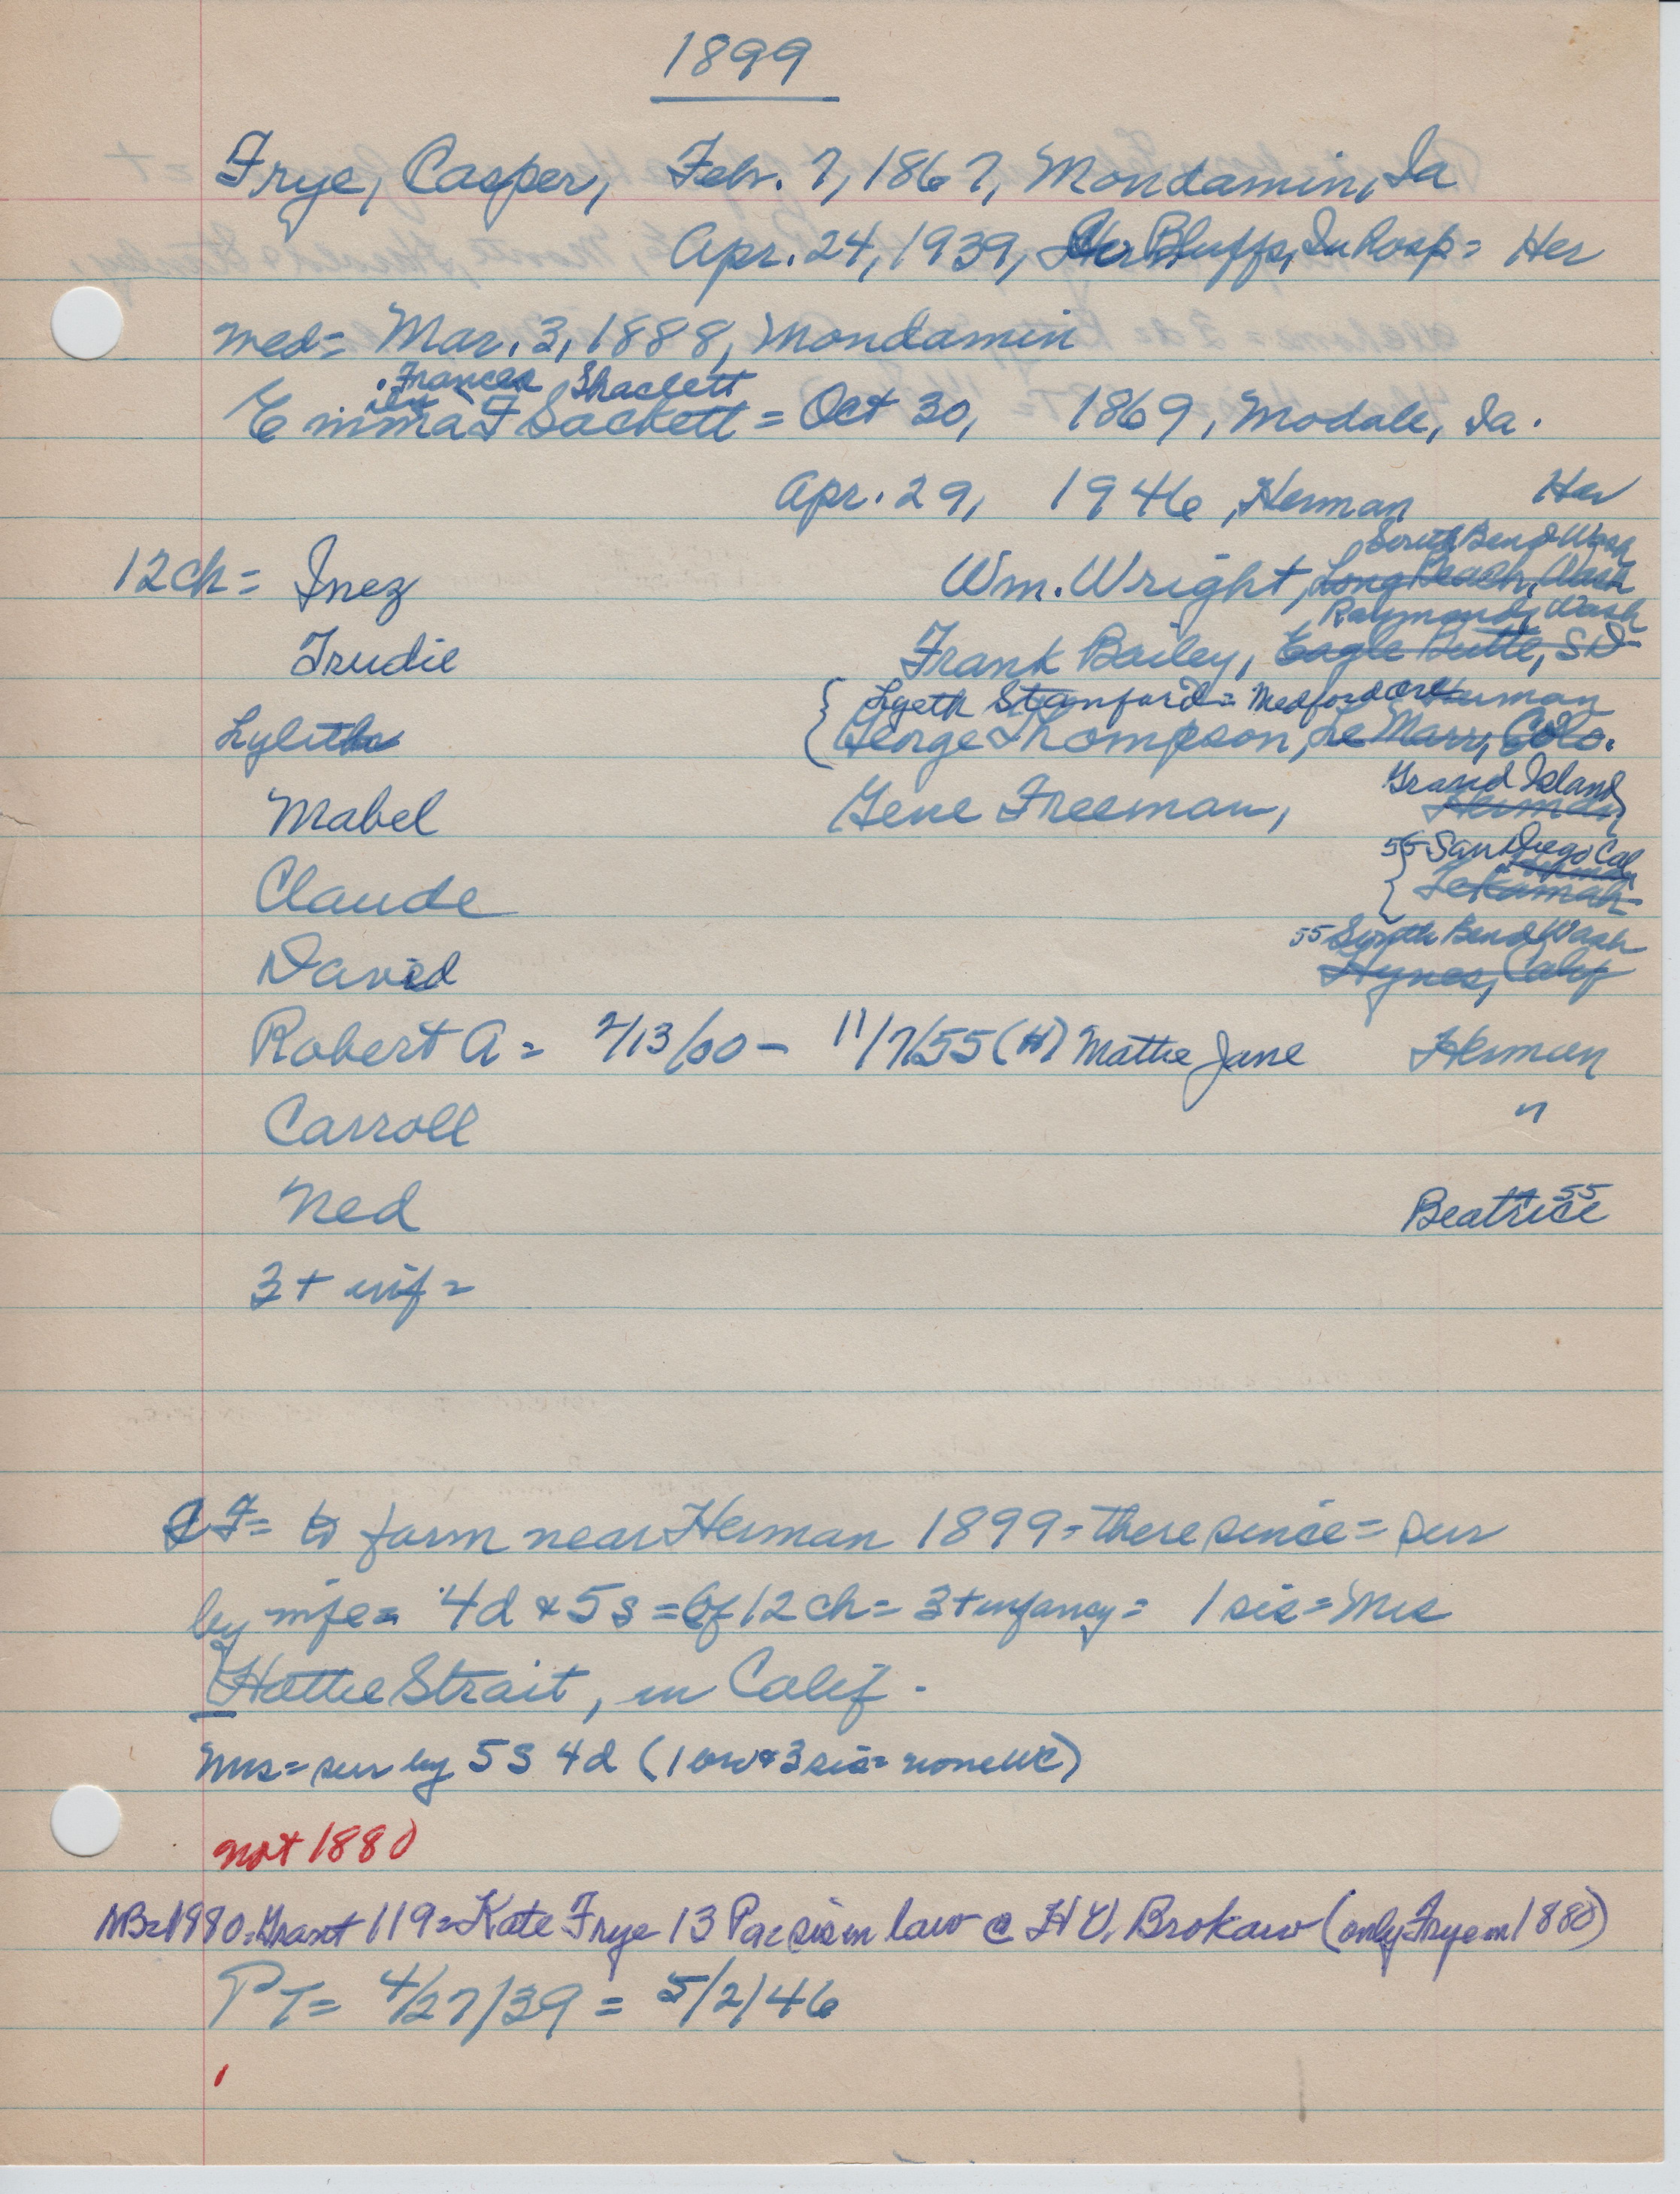 1899
Frye, Casper, Feb. 7, 1867, Mondamin, Ia
Apr. 24, 1939, Bluffs, In Hosp = Her
med = Mar. 3, 1888, Mondamin
Frances Shackett
Emma F Sackett = Oct 30, 1869, Modale, Ia.
Apr. 29, 1946, Herman Her
South Bend Wash
12 ch = Inez Wm. Wright, Long Beach, Wash
Raymond, Wash
Trudie Frank Bailey, Eagle Butte, SD
{ Lyeth Stanford = Medford Ore Herman
Lylith George Thompson, Le Marr, Colo.
Grand Island
Mabel Gene Freeman, Herman
55 San Diego Cal
Claude Tekamah
55 South Bend Wash
David Hynes, Calif
Robert A = 2/13/00 - 11/7/55 (H) Mattie Jane Herman
Carroll "
55
Ned Beatrice
3 + inf =
CF = to farm near Herman 1899 = there since = sur
by wife = 4d & 5s = Of 12 ch = 3 + infancy = 1 sis = Mrs
Hattie Strait, in Calif.
Mrs = sur by 5S 4d (1 bro & 3 sis = none WC)
not 1880
NB = 1980 = Grant 119 = Kate Frye 13 Pa = sis in law @ H V. Brokaw (only Frye in 1880)
PT = 4/27/39 = 5/2/46